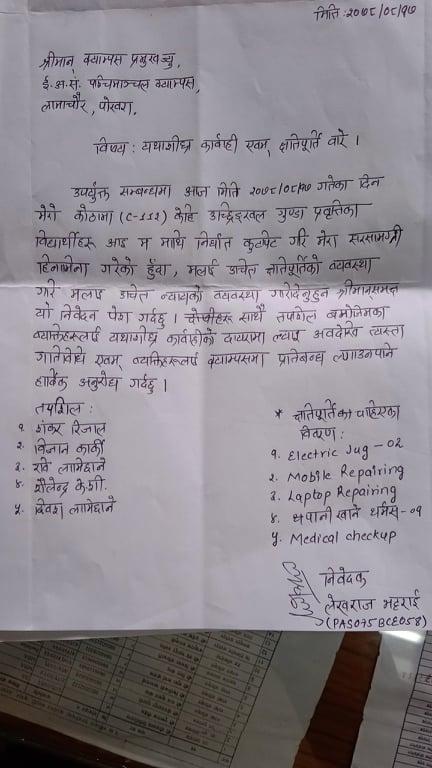 मिति: २०७८/०८/१७
श्रीमान् क्याम्पस प्रमुखज्यु,
ई.अ.सं. पश्चिमाञ्चल क्याम्पस,
लामाचौर, पोखरा,
विषय: यथाशीघ्र कार्वाही एवम् क्षतिपूर्ति बारे ।
उपर्युक्त सम्बन्धमा आज मिति २०७८/०८/१७ गतेका दिन
मेरो कोठामा (C-112) केहि गुण्डा प्रवृत्तिका
विद्यार्थीहरू आइ म माथि निर्घात कुटपिट गरि मेरा सरसामाग्री
हिनामिना गरेको हुँदा, मलाई उचित क्षतिपूर्तिको व्यवस्था
गरि मलाई उचित न्यायको व्यवस्था गरिदिनुहुन श्रीमान्समक्ष
यो निवेदन पेश गर्दछु । साथै तपशिल बमोजिमका
व्यक्तिहरूलाई यथाशीघ्र कार्वाहीको दायरामा ल्याइ अबदेखि त्यस्ता
गतिविधि एवम् व्यक्तिहरूलाई क्याम्पसमा प्रतिबन्ध लगाउनपनि
हार्दिक अनुरोध गर्दछु ।
तपशिल:
१. शंकर रिजाल
२. विज्ञान कार्की
३. रवि लामिछाने
४. शैलेन्द्र के.सी.
५. दिवश लामिछाने
* क्षतिपूर्तिका चाहिएका
विवरण:
१. Electric Jug - 02
२. Mobile Repairing
३. Laptop Repairing
४. खाने थर्मस - ०१
५. Medical checkup
निवेदक
लेखराज भट्टराई
(PAS075BCE058)